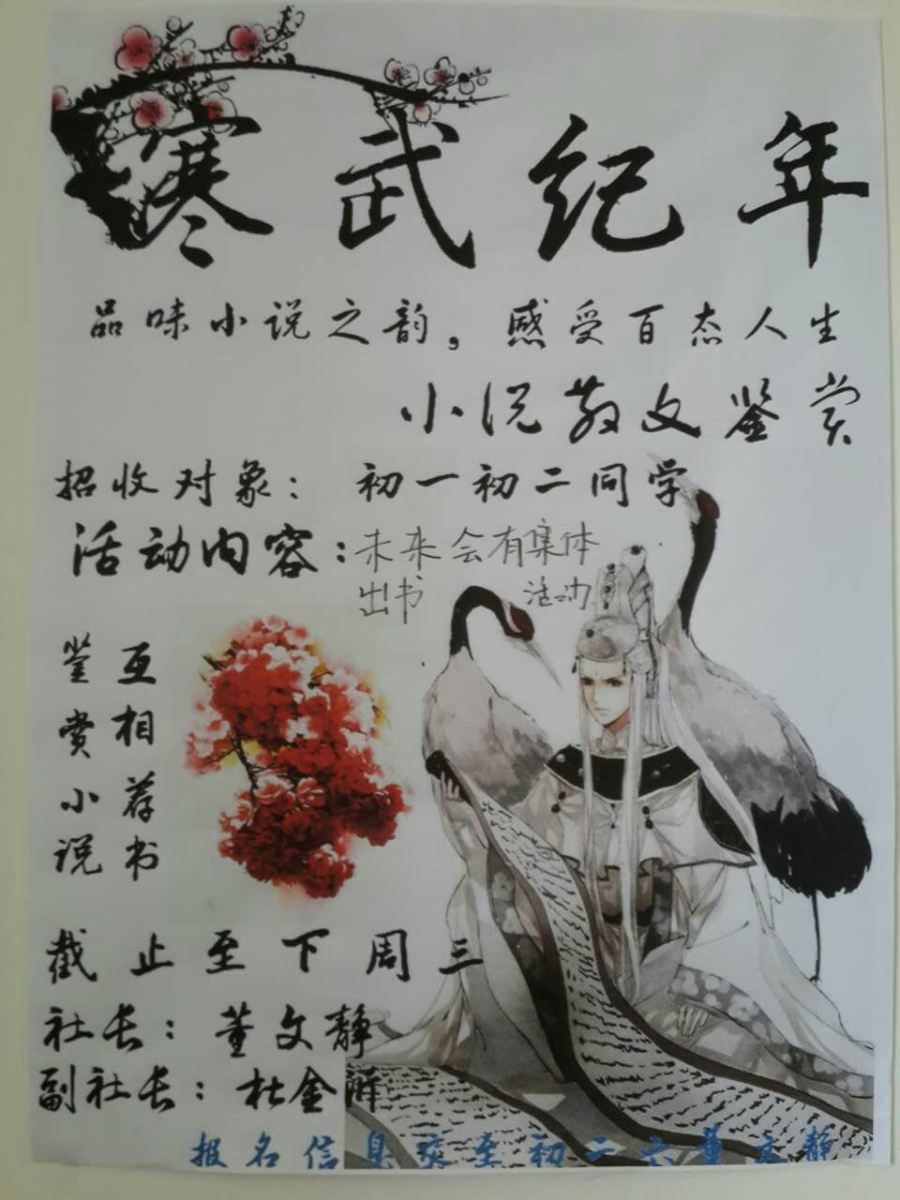 寒武纪年
品味小说之韵，感受百态人生
小说散文鉴赏
招收对象：初一初二同学
活动内容：未来会有集体
出书 活动
互相荐书
鉴赏小说
截止至下周三
社长：董文静
副社长：杜金
报名信息交至初二六董文静